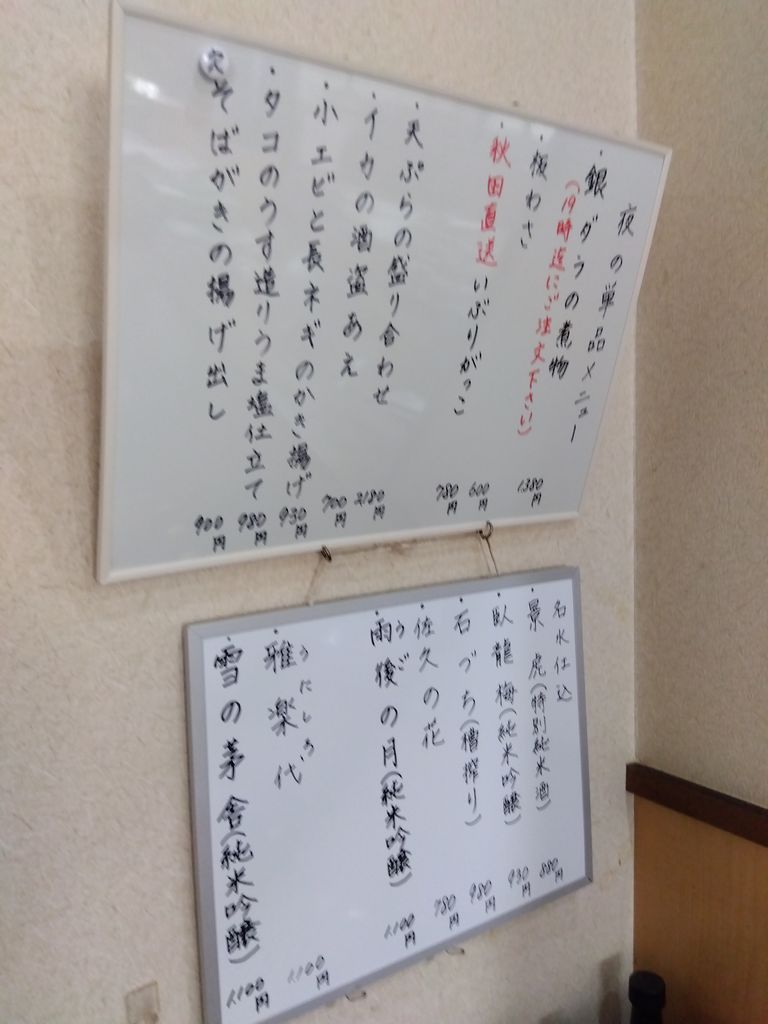 夜の単品メニュー
・銀ダラの煮物 1380円
(19時迄にご注文下さい)
・板わさ 600円
・秋田直送いぶりがっこ 780円
・天ぷらの盛り合わせ 2180円
・イカの酒盗あえ 700円
・小エビと長ネギのかき揚げ 930円
・タコのうす造りうま塩仕立て 980円
・そばがきの揚げ出し 900円
名水仕込
・景虎(特別純米酒) 880円
・臥龍梅(純米吟醸) 930円
・石づち(槽搾り) 980円
・佐久の花 780円
うご
・雨後の月(純米吟醸) 1,100円
うたしろ
・雅楽代 1,100円
・雪の茅舎(純米吟醸) 1,100円